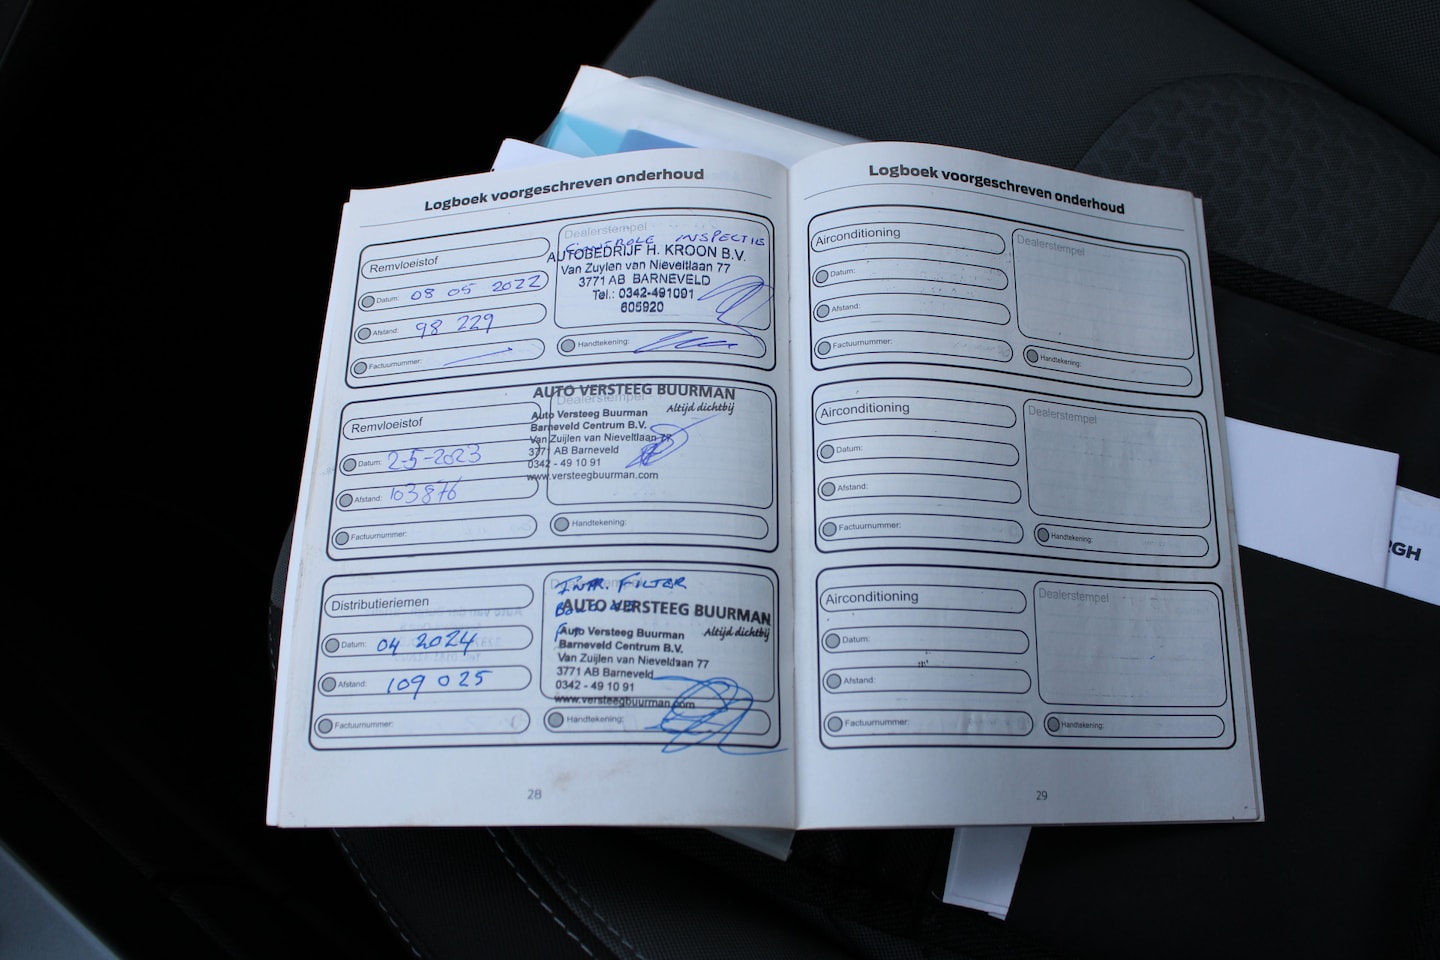 Logboek voorgeschreven onderhoud
Remvloeistof
Datum: 08 05 2022
Afstand: 98 229
Factuurnummer:
Dealerstempel
CONTROLE INSPECTIE
AUTOBEDRIJF H. KROON B.V.
Van Zuylen van Nieveltlaan 77
3771 AB BARNEVELD
Tel.: 0342-491091
605920
Handtekening:
Remvloeistof
Datum: 2-5-2023
Afstand: 103876
Factuurnummer:
AUTO VERSTEEG BUURMAN
Dealerstempel
Altijd dichtbij
Auto Versteeg Buurman
Barneveld Centrum B.V.
Van Zuijlen van Nieveltlaan 77
3771 AB Barneveld
0342 - 49 10 91
www.versteegbuurman.com
Handtekening:
Distributieriemen
Datum: 04 2024
Afstand: 109 025
Factuurnummer:
INTR. FILTER
AUTO VERSTEEG BUURMAN
Altijd dichtbij
Auto Versteeg Buurman
Barneveld Centrum B.V.
Van Zuijlen van Nieveltlaan 77
3771 AB Barneveld
0342 - 49 10 91
www.versteegbuurman.com
Handtekening:
28
Logboek voorgeschreven onderhoud
Airconditioning
Datum:
Afstand:
Factuurnummer:
Dealerstempel
Handtekening:
Airconditioning
Datum:
Afstand:
Factuurnummer:
Dealerstempel
Handtekening:
Airconditioning
Datum:
Afstand:
Factuurnummer:
Dealerstempel
Handtekening:
29